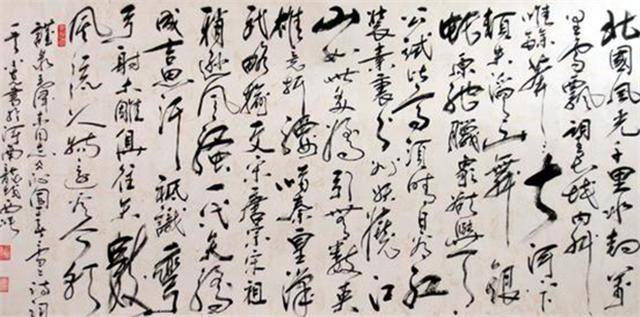 北國風光千里冰封萬
里雪飄望長城内外
惟餘莽莽大河上下
頓失滔滔山舞銀
蛇原馳臘象欲與天
公試比高須晴日看紅
裝素裹分外妖嬈江
山如此多嬌引無數英
雄竞折腰惜秦皇漢
武略輸文采唐宗宋祖
稍遜風騷一代天驕
成吉思汗祗識彎
弓射大雕俱往矣數
風流人物還看今朝
毛澤東同志沁園春雪之詩詞
書於河南龍城